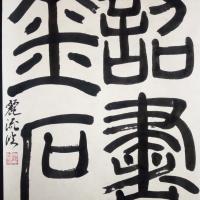 詔書
金石